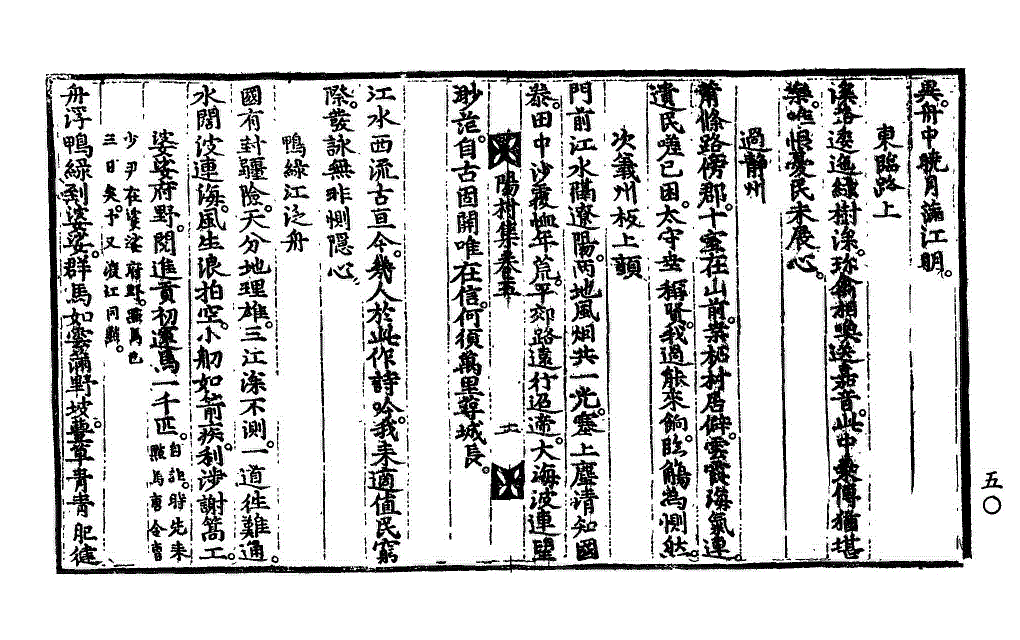 舟中曉月滿江明。
東臨路上
溪路逶迤綠樹深。珍禽相喚送嘉音。此中乘傳猶堪
樂。唯恨憂民未展心。
過靜州
蕭條路傍郡。十室在山前。桑柘村居僻。雲霞海氣連。
遺民嗟已困。太守世稱賢。我過能來餉。臨觴爲惻然。
次義州板上韻
門前江水隔遼陽。兩地風烟共一光。塞上塵淸知國
泰。田中沙覆恤年荒。平郊路遠行迢遞。大海波連望
渺茫。自古固開唯在信。何須萬里尋城長。
陽村集卷五
十
江水西流古亘今。幾人於此作詩吟。我來適値民窮
際。發詠無非惻隱心。
鴨綠江泛舟
國有封疆險。天分地理雄。三江深不測。一道往難通。
水闊波連海。風生浪拍空。小舠如箭疾。利涉謝篙工。
娑娑府野。閱進貢初運馬一千匹。自註。時先朱
點馬唐令
少尹在娑娑府野。
三日矣。予又渡江同點。
舟浮鴨綠到娑娑。群馬如雲滿野坡。豐草青青肥健
五〇